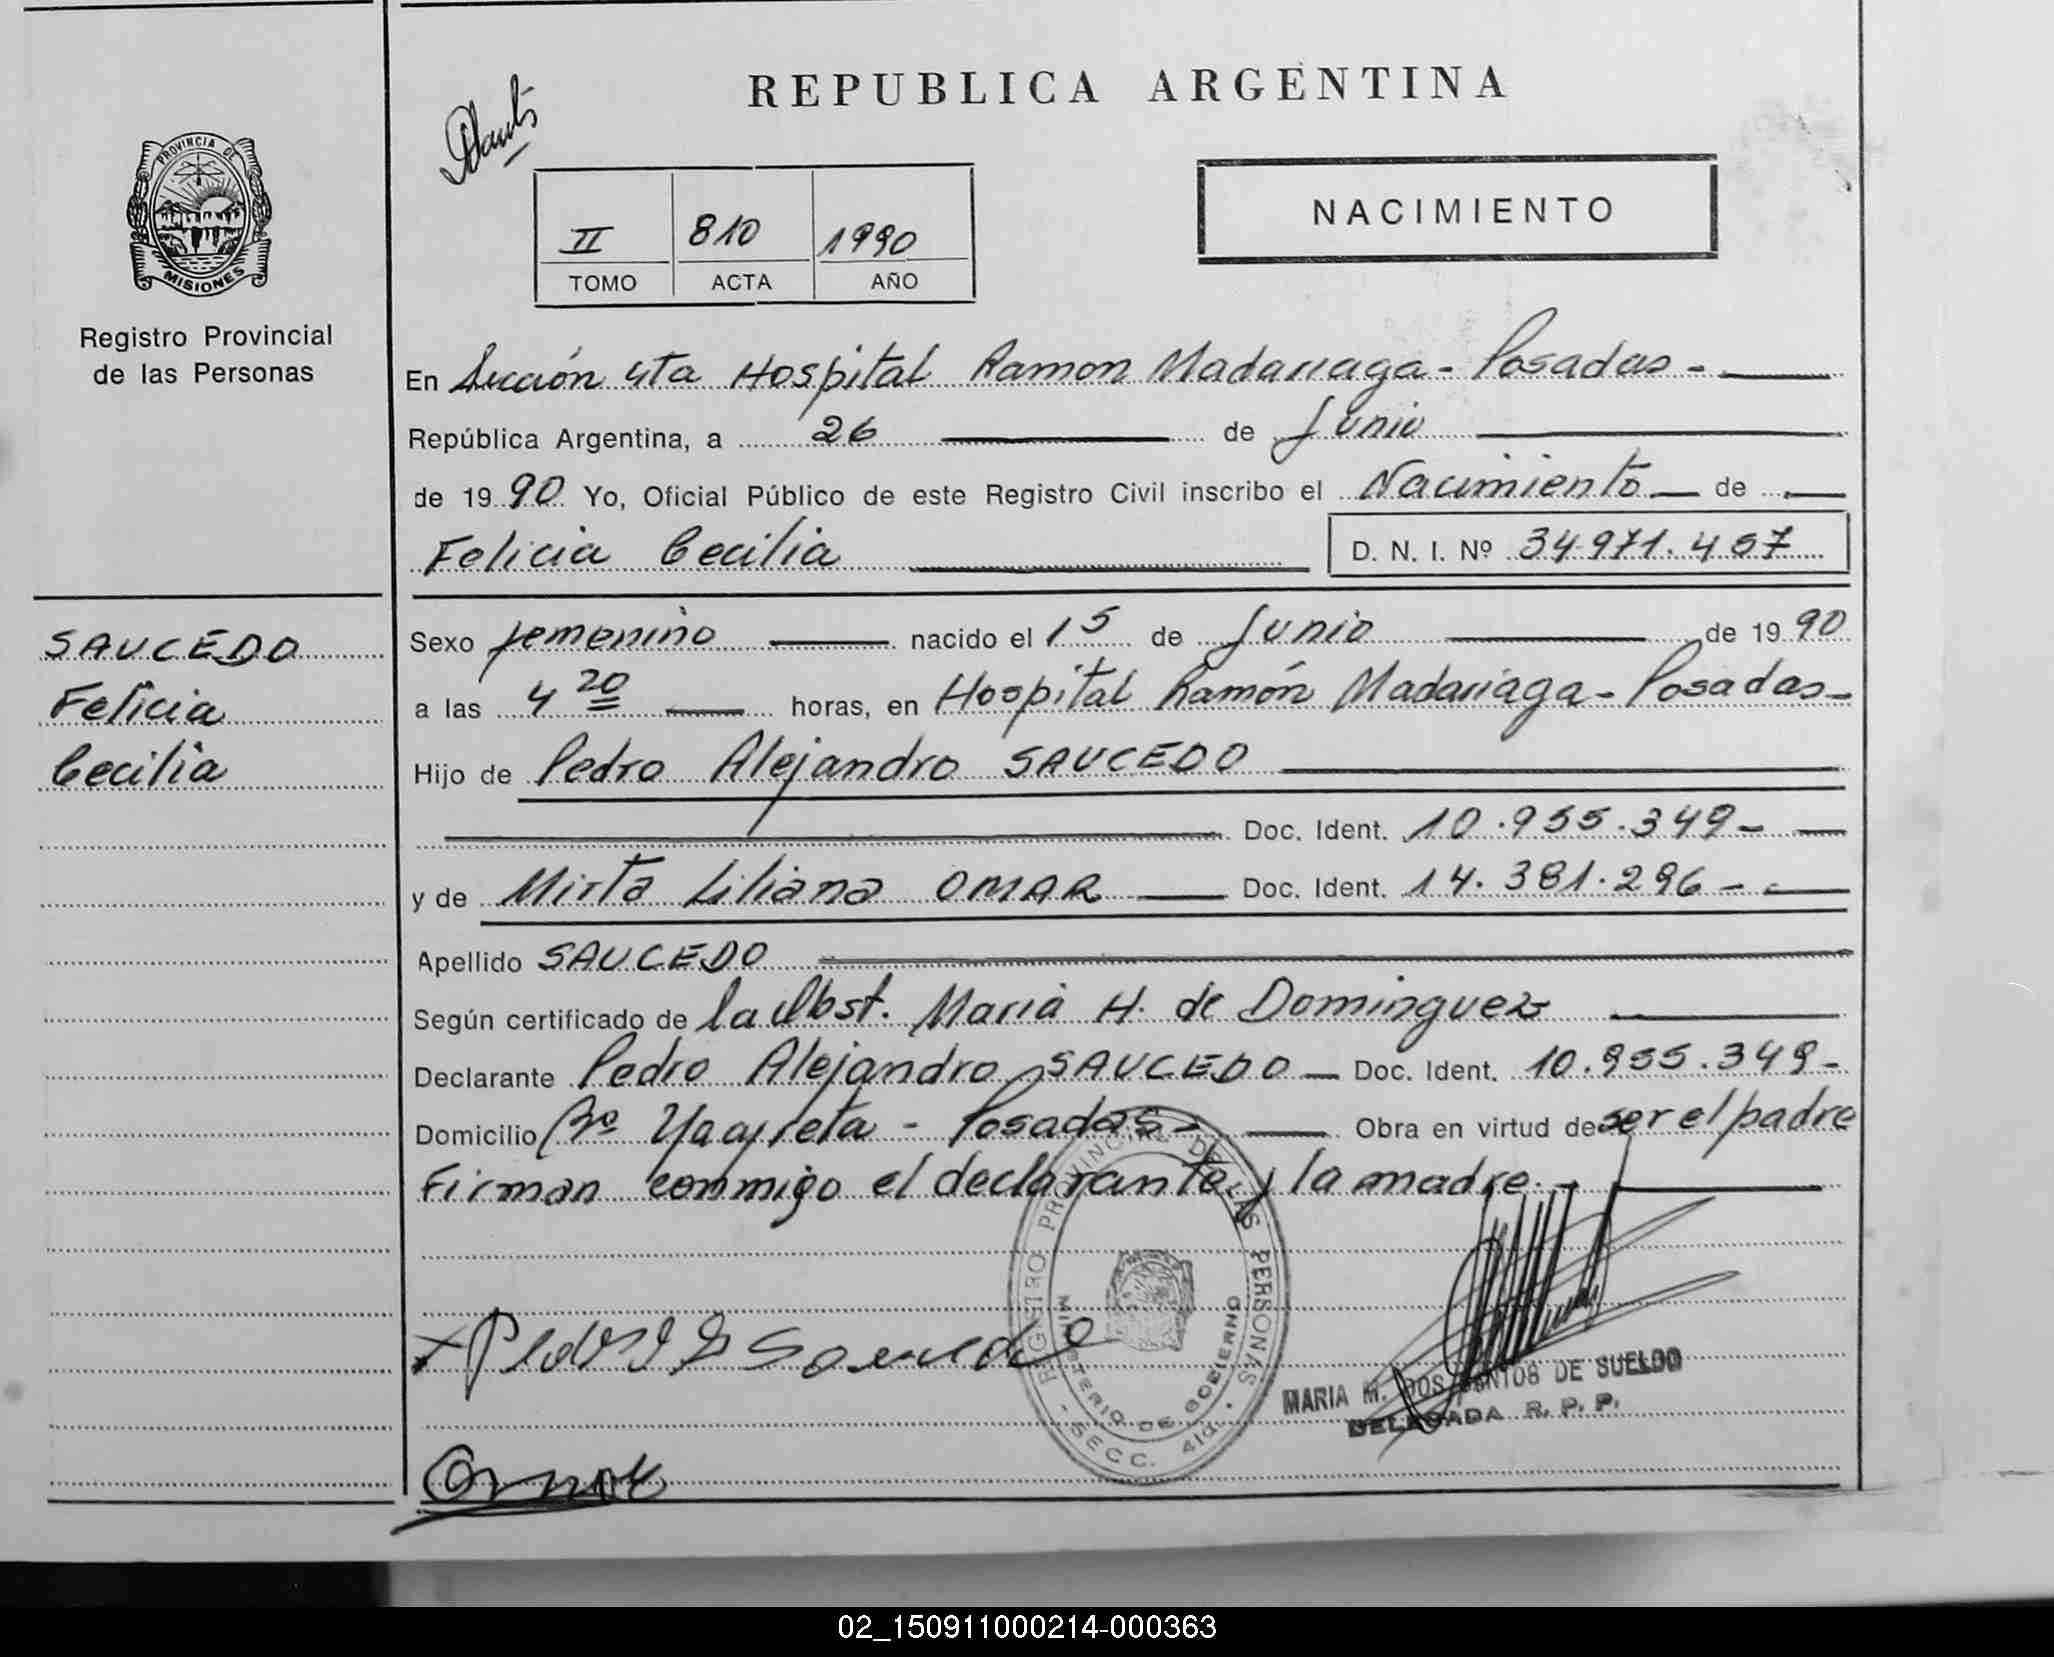 REPUBLICA ARGENTINA
PROVINCIA DE
MISIONES
Registro Provincial
de las Personas
NACIMIENTO
II 810 1990
TOMO ACTA AÑO
En Sección 4ta Hospital Ramon Madariaga - Posadas -
República Argentina, a 26 de Junio
de 1990 Yo, Oficial Público de este Registro Civil inscribo el Nacimiento de
Felicia Cecilia D. N. I. Nº 34.971.457
SAUCEDO
Felicia
Cecilia
Sexo femenino nacido el 15 de Junio de 1990
a las 4 20 horas, en Hospital Ramón Madariaga - Posadas -
Hijo de Pedro Alejandro SAUCEDO
Doc. Ident. 10.955.349 -
y de Mirta Liliana OMAR Doc. Ident. 14.381.296 -
Apellido SAUCEDO
Según certificado de la Obst. Maria H. de Dominguez
Declarante Pedro Alejandro SAUCEDO Doc. Ident. 10.955.349 -
Domicilio Bº Yacyreta - Posadas - Obra en virtud de ser el padre
Firman conmigo el declarante y la madre. -
REGISTRO PROVINCIAL DE LAS PERSONAS
MINISTERIO DE GOBIERNO
- SECC. 4ta. -
MARIA M. DOS SANTOS DE SUELDO
DELEGADA R. P. P.
02_150911000214-000363